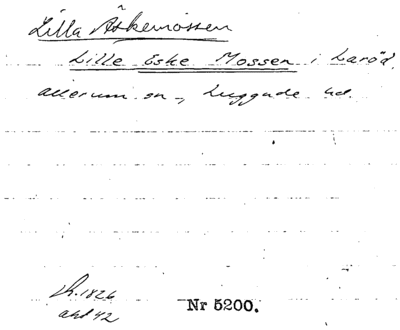 Lilla Äskemossen
Lille Eske Mossen i Laröd.
Allerum sn, Luggude hd.
Sk. 1826
akt 42
Nr 5200.